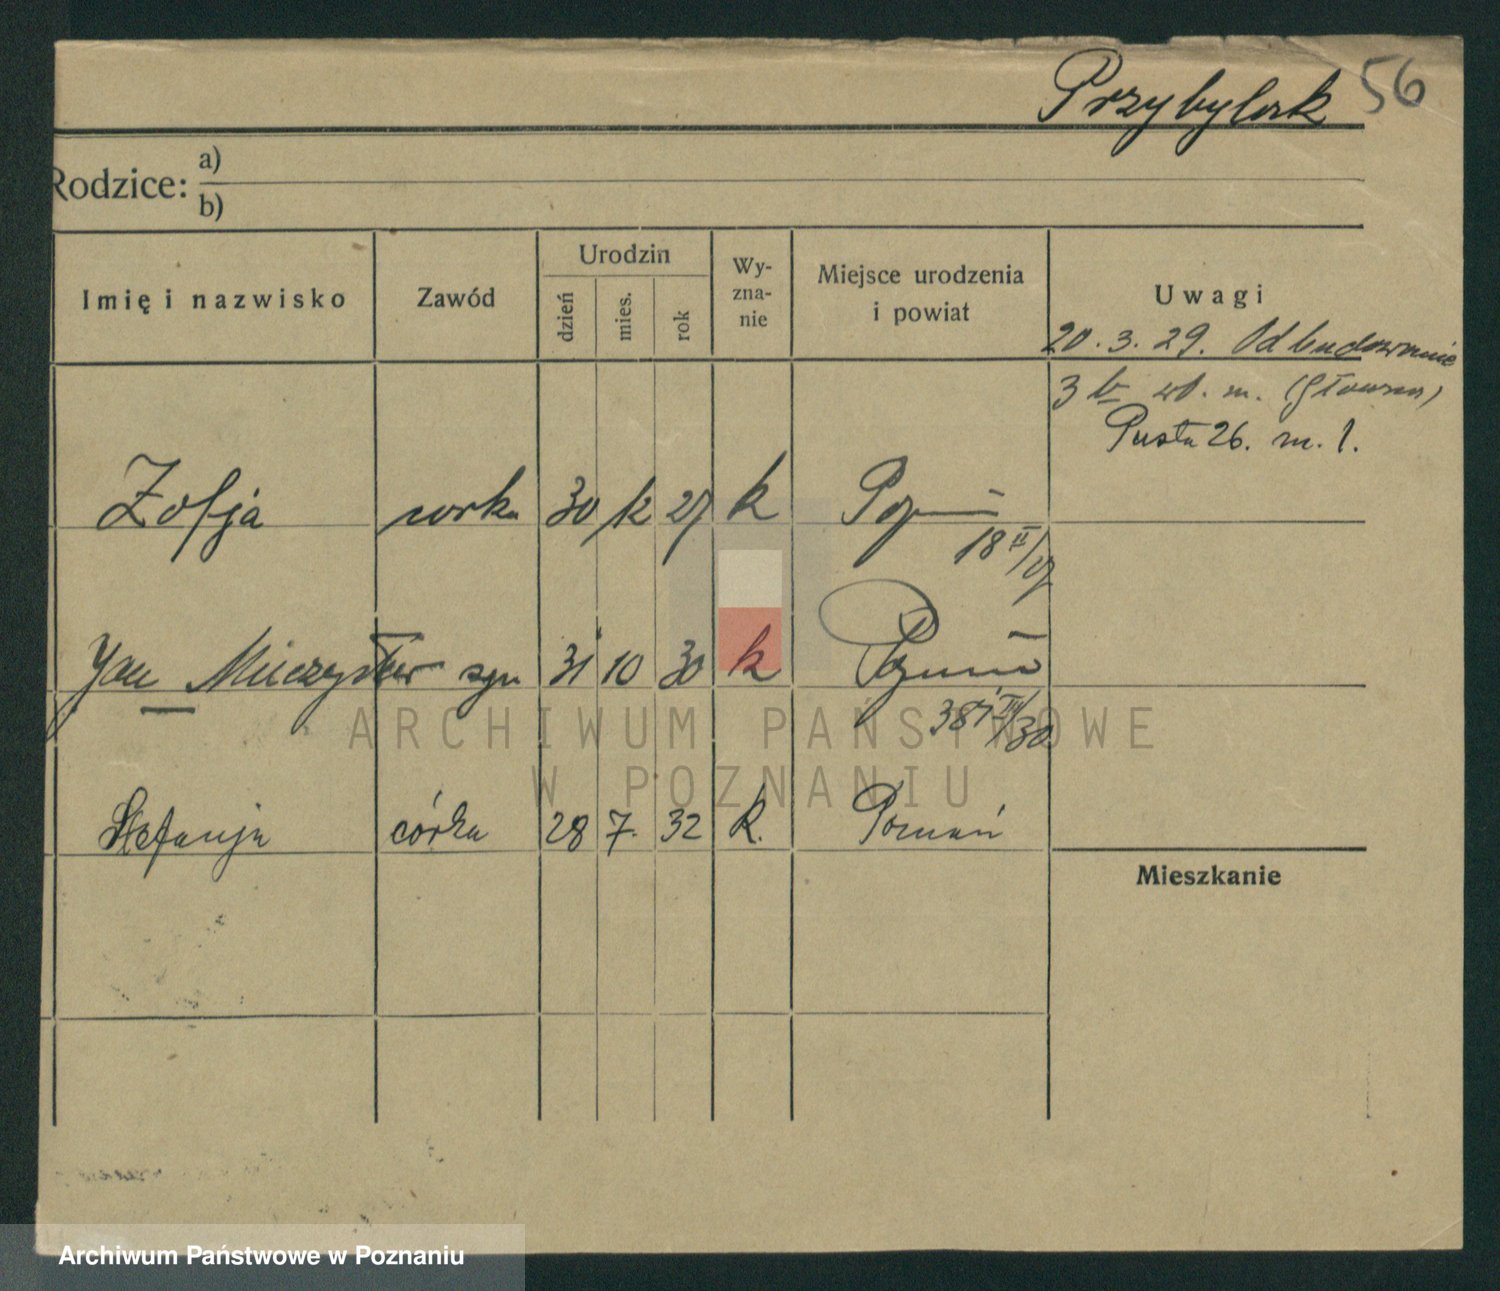 Przybylak 56
Rodzice: a)
b)
Imię i nazwisko Zawód Urodzin dzień mies. rok Wy-zna-nie Miejsce urodzenia i powiat Uwagi
20.3.29. Odbudowanie
3 wł. m. (Główna)
Pusta 26. m. 1.
Zofja corka 30 12 27 k Pozn
18 II/27
Jan Mieczysław syn 31 10 30 k Poznań
38 /30
Stefanja córka 28 7. 32 k. Poznań
Mieszkanie
ARCHIWUM PAŃSTWOWE
W POZNANIU
Archiwum Państwowe w Poznaniu